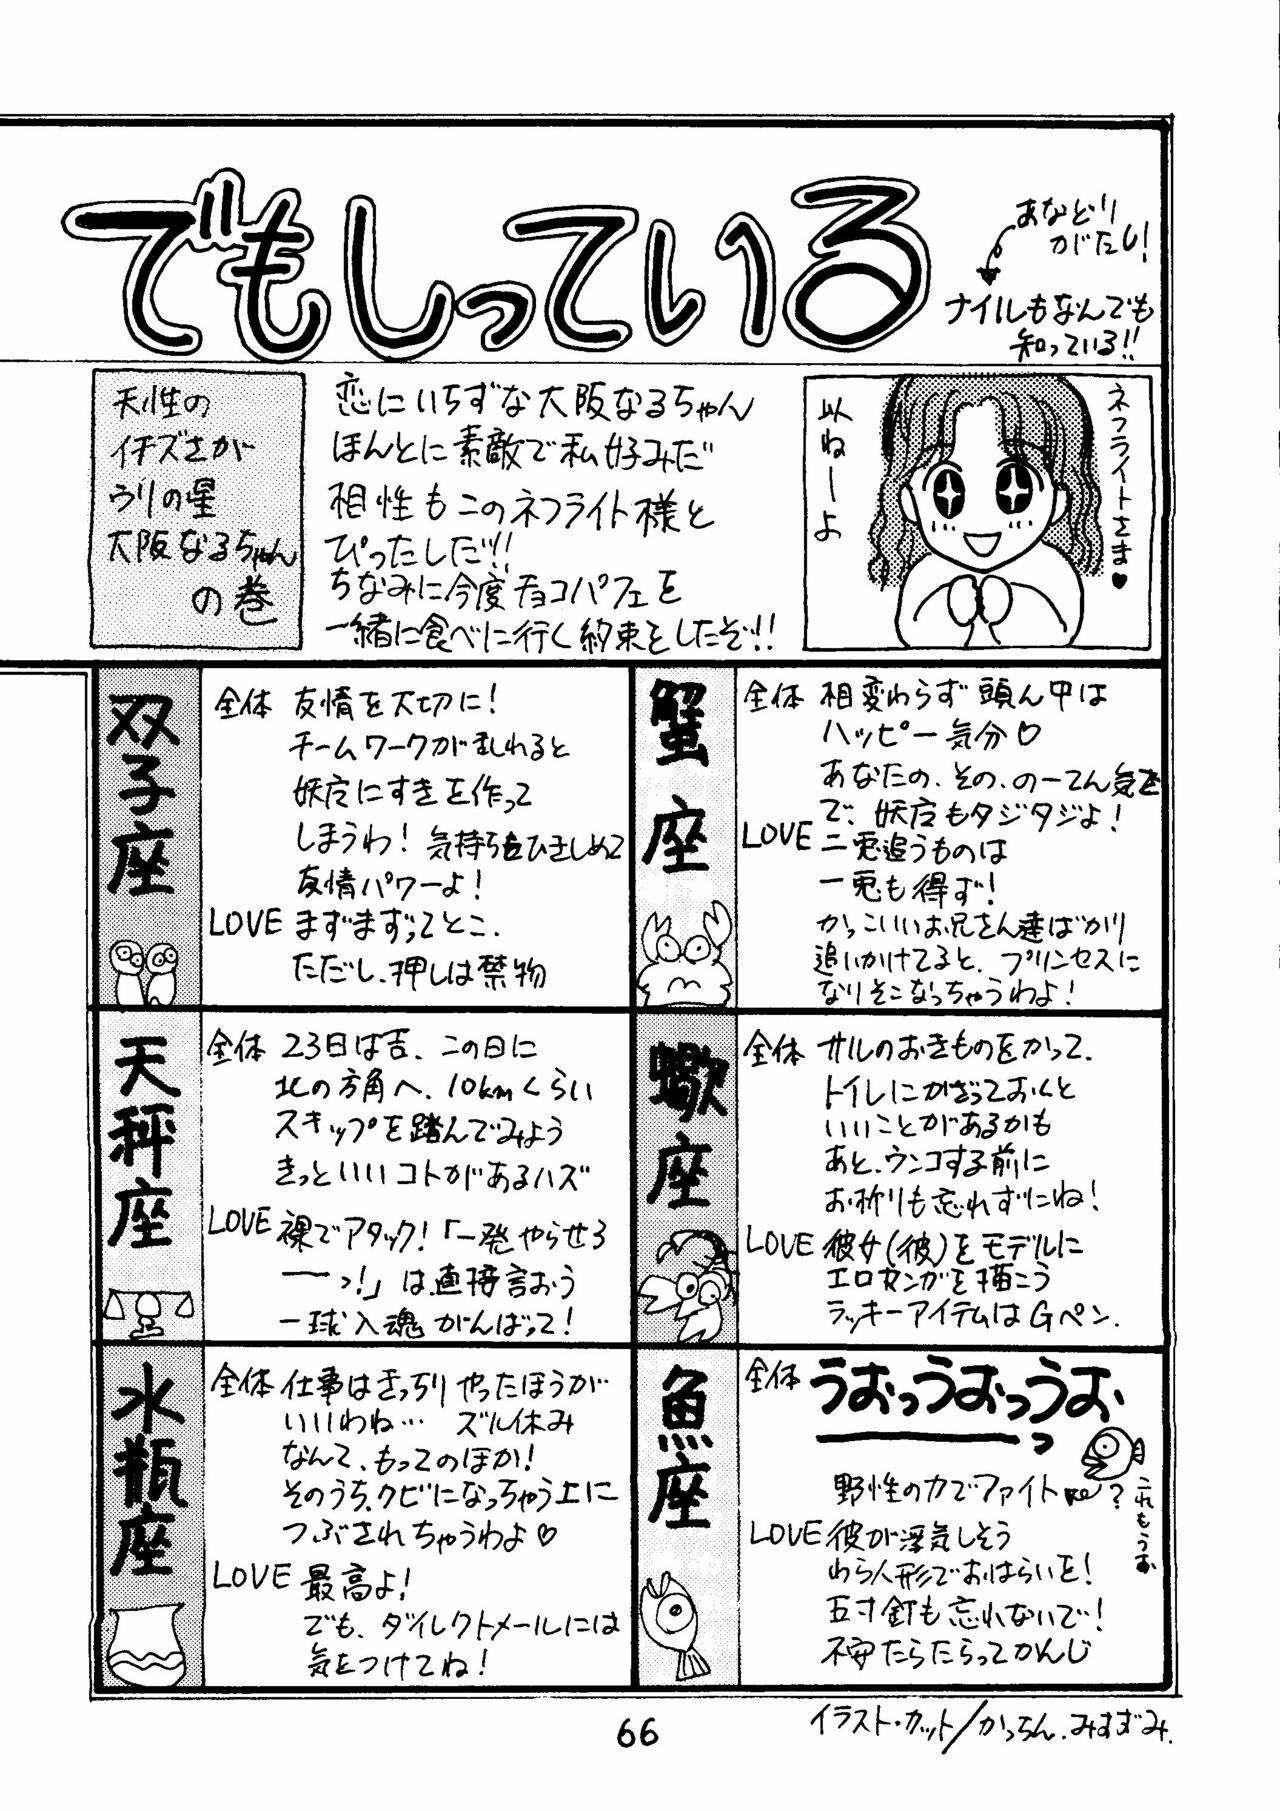 でもしっている
あなどり
がたし!
ナイルもなんでも
知っている!!
天性の
イチズさが
ウリの星
大阪なるちゃん
の巻
恋にいちずな大阪なるちゃん
ほんとに素敵で私好みだ
相性もこのネフライト様と
ぴったしだ!!
ちなみに今度チョコパフェを
一緒に食べに行く約束をしたぞ!!
ネフライトさま♥
以ねーよ
双子座
全体 友情を大切に!
チームワークが乱れると
妖魔にすきを作って
しまうわ! 気持ちをひきしめて
友情パワーよ!
LOVE まずまずってとこ.
ただし、押しは禁物
蟹座
全体 相変わらず頭ん中は
ハッピー気分♡
あなたの、その、のーてん気さ
で、妖魔もタジタジよ!
LOVE 二兎追うものは
一兎も得ず!
かっこいいお兄さん達ばかり
追いかけてると、プリンセスに
なりそこなっちゃうわよ!
天秤座
全体 23日は吉、この日に
北の方角へ、10kmくらい
スキップを踏んでみよう
きっといいコトがあるハズ
LOVE 裸でアタック!「一発やらせろ
ーっ!」は直接言おう
一球入魂がんばって!
蠍座
全体 サルのおきものをかって、
トイレにかざっておくと
いいことがあるかも
あと、ウンコする前に
お祈りも忘れずにね!
LOVE 彼女(彼)をモデルに
エロマンガを描こう
ラッキーアイテムはGペン.
水瓶座
全体 仕事はきっちりやったほうが
いいわね… ズル休み
なんて、もってのほか!
そのうち、クビになっちゃう上に
つぶされちゃうわよ♡
LOVE 最高よ!
でも、ダイレクトメールには
気をつけてね!
魚座
全体 うおっうおっうお
ーっ
野性の力でファイト
?
これもうお
LOVE 彼が浮気しそう
わら人形でおはらいを!
五寸釘も忘れないで!
不安たらたらってかんじ
66
イラスト・カット/かっちん.みすずみ.